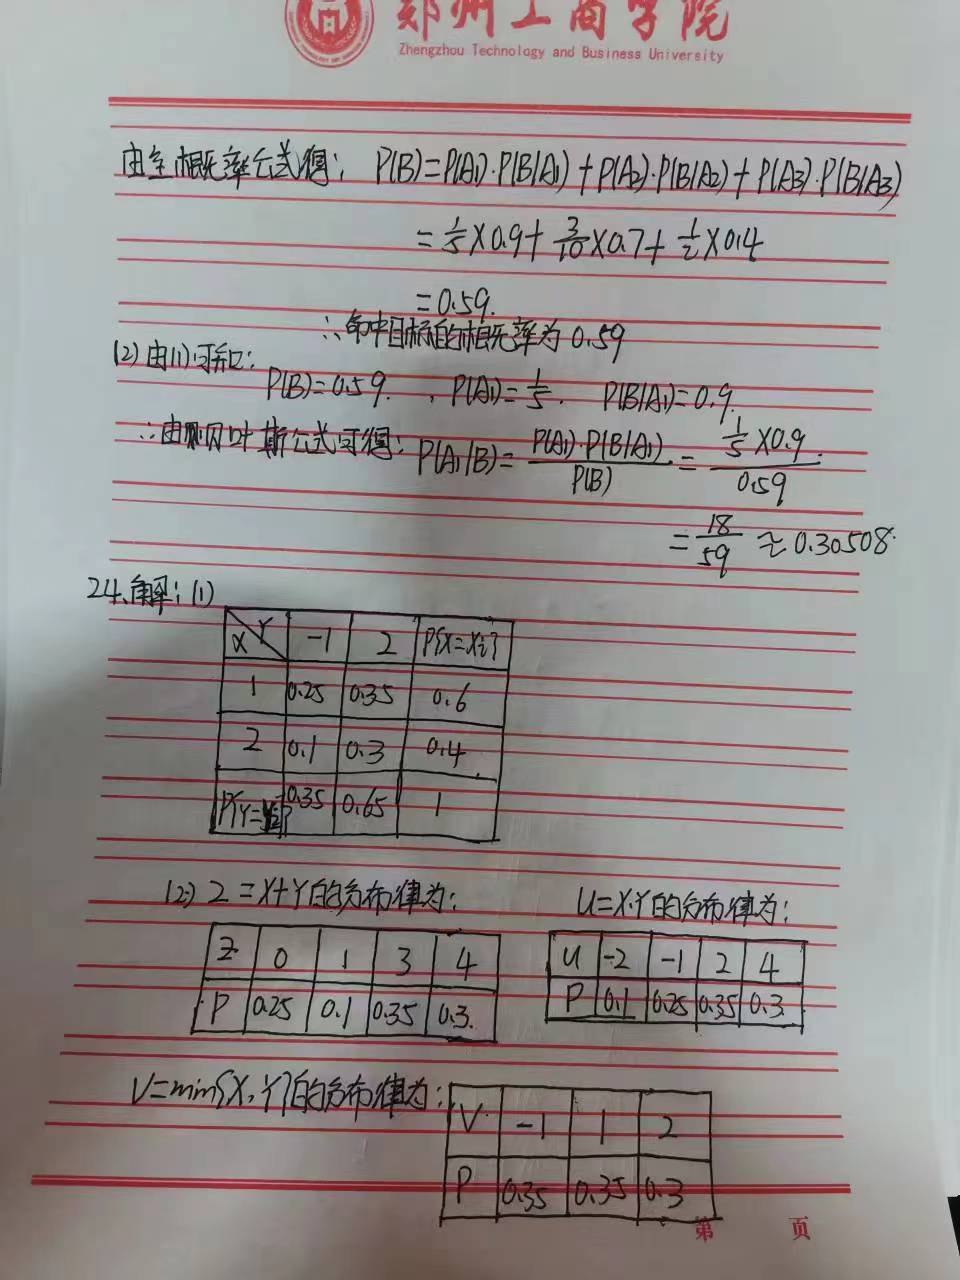 郑州工商学院
Zhengzhou Technology and Business University
由全概率公式得: P(B)=P(A1)·P(B|A1)+P(A2)·P(B|A2)+P(A3)·P(B|A3)
=1/5×0.9+3/10×0.7+1/2×0.4
=0.59.
∴命中目标的概率为0.59
(2)由(1)可知:
P(B)=0.59. , P(A1)=1/5. P(B|A1)=0.9.
∴由贝叶斯公式可得: P(A1|B)=P(A1)·P(B|A1)/P(B)=1/5×0.9/0.59
=18/59≈0.30508.
24、解:(1)
X Y -1 2 P{X=xi}
1 0.25 0.35 0.6
2 0.1 0.3 0.4
P{Y=yj} 0.35 0.65 1
(2) Z=X+Y的分布律为: U=X·Y的分布律为:
Z 0 1 3 4
P 0.25 0.1 0.35 0.3
U -2 -1 2 4
P 0.1 0.25 0.35 0.3
V=min{X,Y}的分布律为:
V -1 1 2
P 0.35 0.35 0.3
第 页